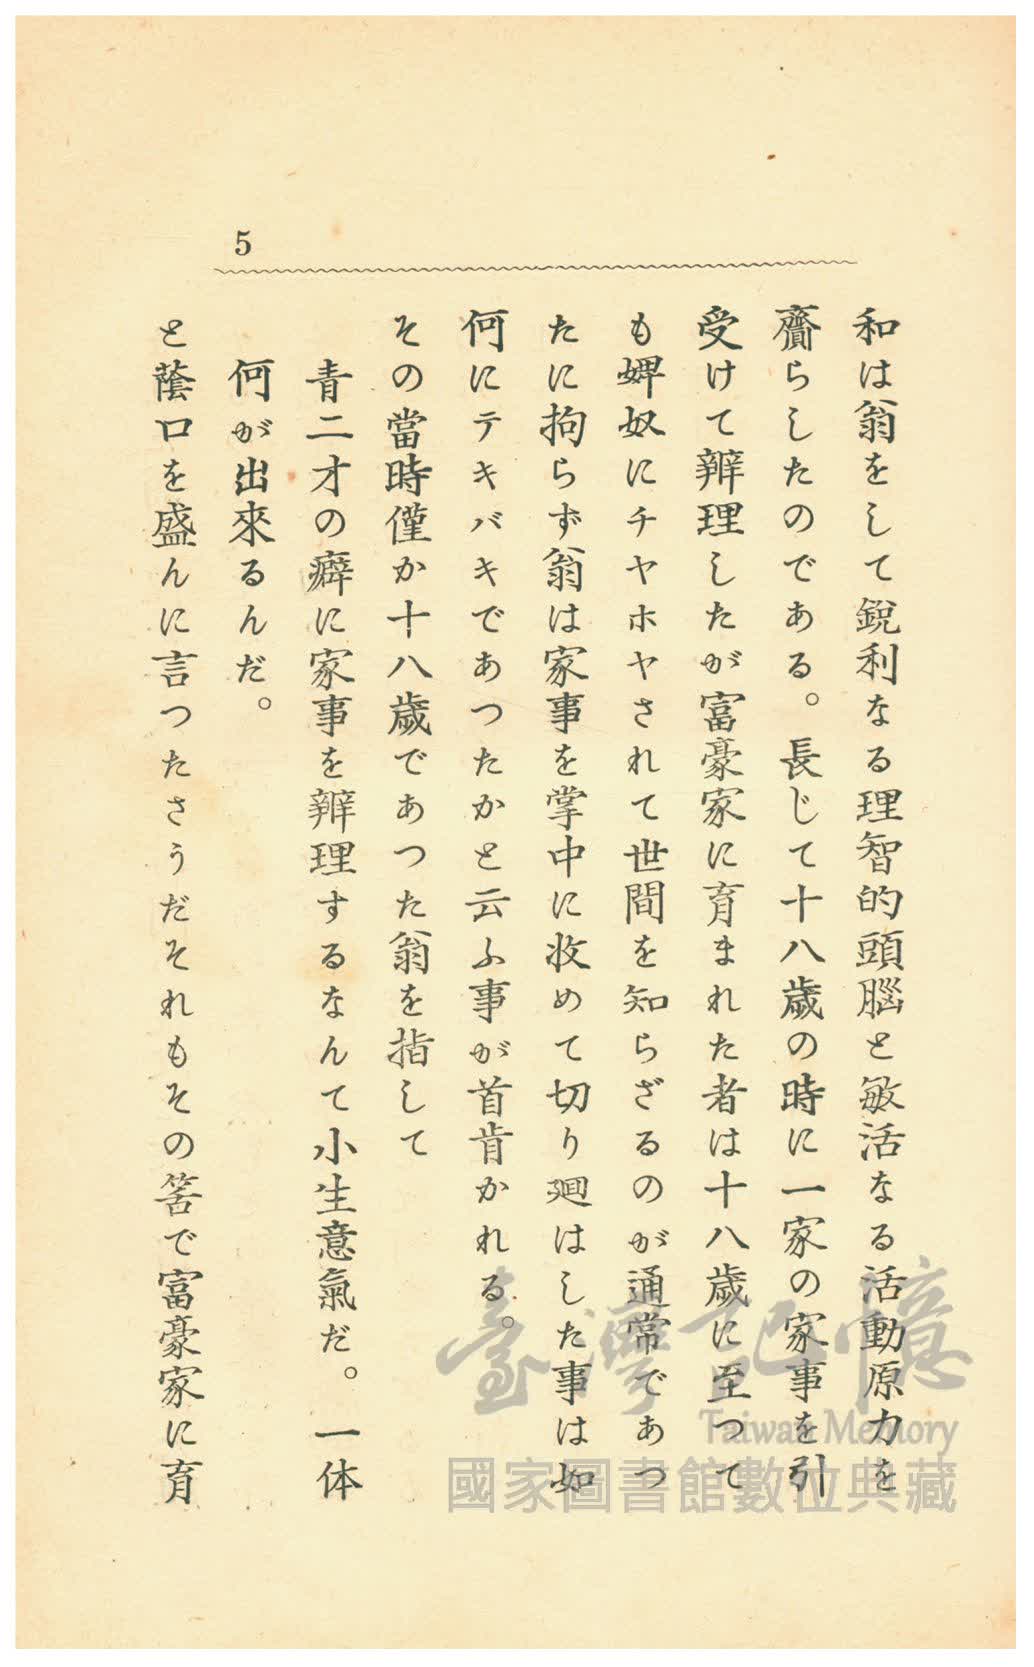 5
和は翁をして鋭利なる理智的頭腦と敏活なる活動原力を
齎らしたのである。長じて十八歳の時に一家の家事を引
受けて辧理したが富豪家に育まれた者は十八歳に至つて
も婢奴にチヤホヤされて世間を知らざるのが通常であつ
たに拘らず翁は家事を掌中に收めて切り廻はした事は如
何にテキバキであつたかと云ふ事が首肯かれる。
その當時僅か十八歳であつた翁を指して
青二才の癖に家事を辧理するなんて小生意氣だ。一体
何が出來るんだ。
と蔭口を盛んに言つたさうだそれもその筈で富豪家に育
臺灣記憶
Taiwan Memory
國家圖書館數位典藏